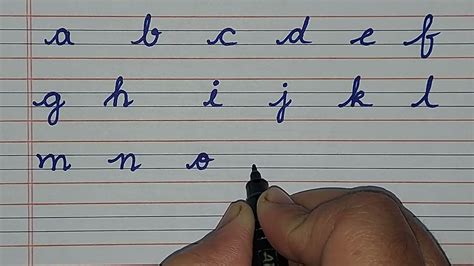 a b c d e f
g h i j k l
m n o